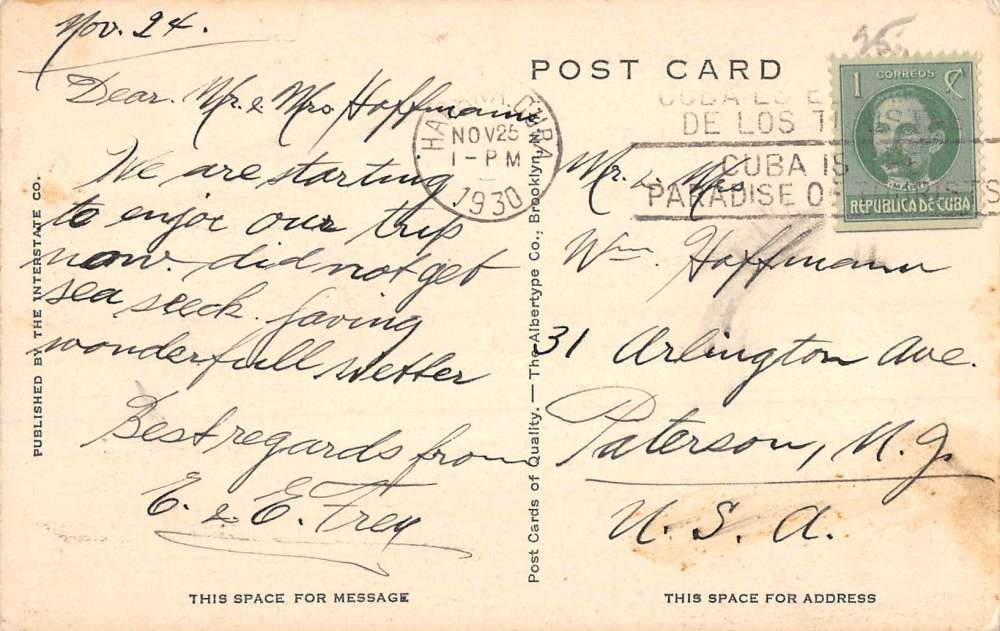 Nov. 24.
Dear. Mr. & Mrs Hoffmann,
We are starting
to enjoi our trip
now. did not get
sea seeck. faving
wonderfull wetter
Best regards from
E. & E. Frey
THIS SPACE FOR MESSAGE
PUBLISHED BY THE INTERSTATE CO.
Post Cards of Quality. — The Albertype Co., Brooklyn, N.Y.
POST CARD
CUBA
NOV 25
1-PM
1930
CUBA ES E
DE LOS
CUBA IS
PARADISE OF TOURISTS
1 CORREOS
REPUBLICA DE CUBA
Mr. & Mrs
Wm. Hoffmann
31 Arlington Ave.
Paterson, N.J.
U. S. A.
THIS SPACE FOR ADDRESS